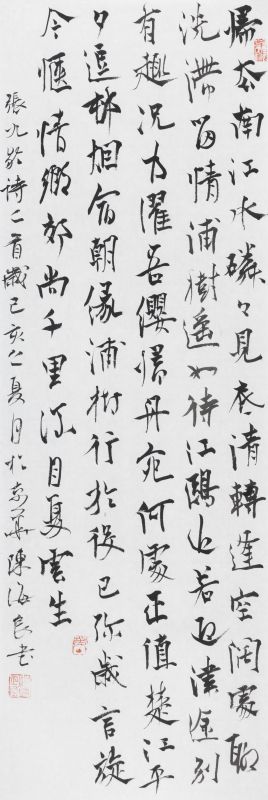 歸去南江水磷々見底清轉逢空闊處聊
洗滯留情浦樹遥如待江鷗近若迎津途別
有趣况乃濯吾纓歸舟宛何處正值楚江平
夕逗邨烟宿朝緣浦樹行於役已弥歲言旋
今愜情鄉郊尚千里流目夏雲生
張九齡詩二首歲己亥之夏月於京華陳海良书